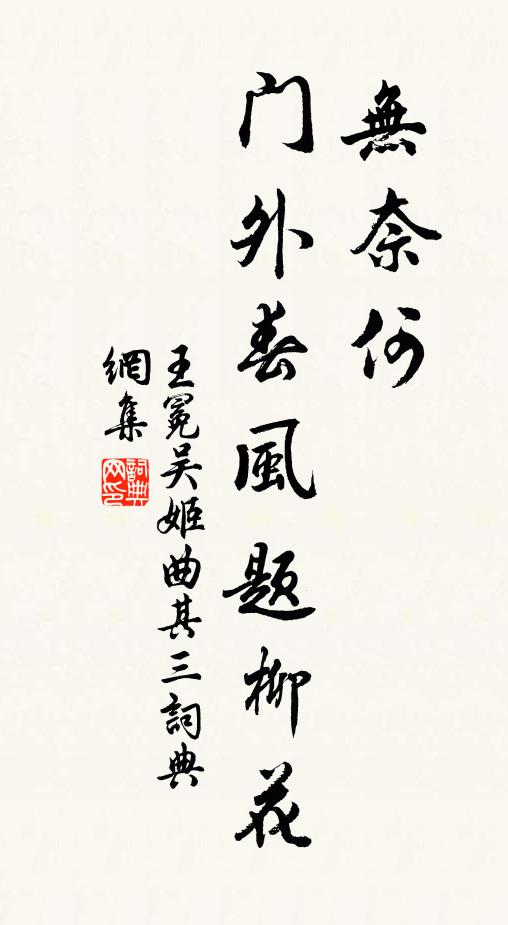 無奈何
门外春風題柳花
王冕吴姬曲其三詞典
網集
詞典网印